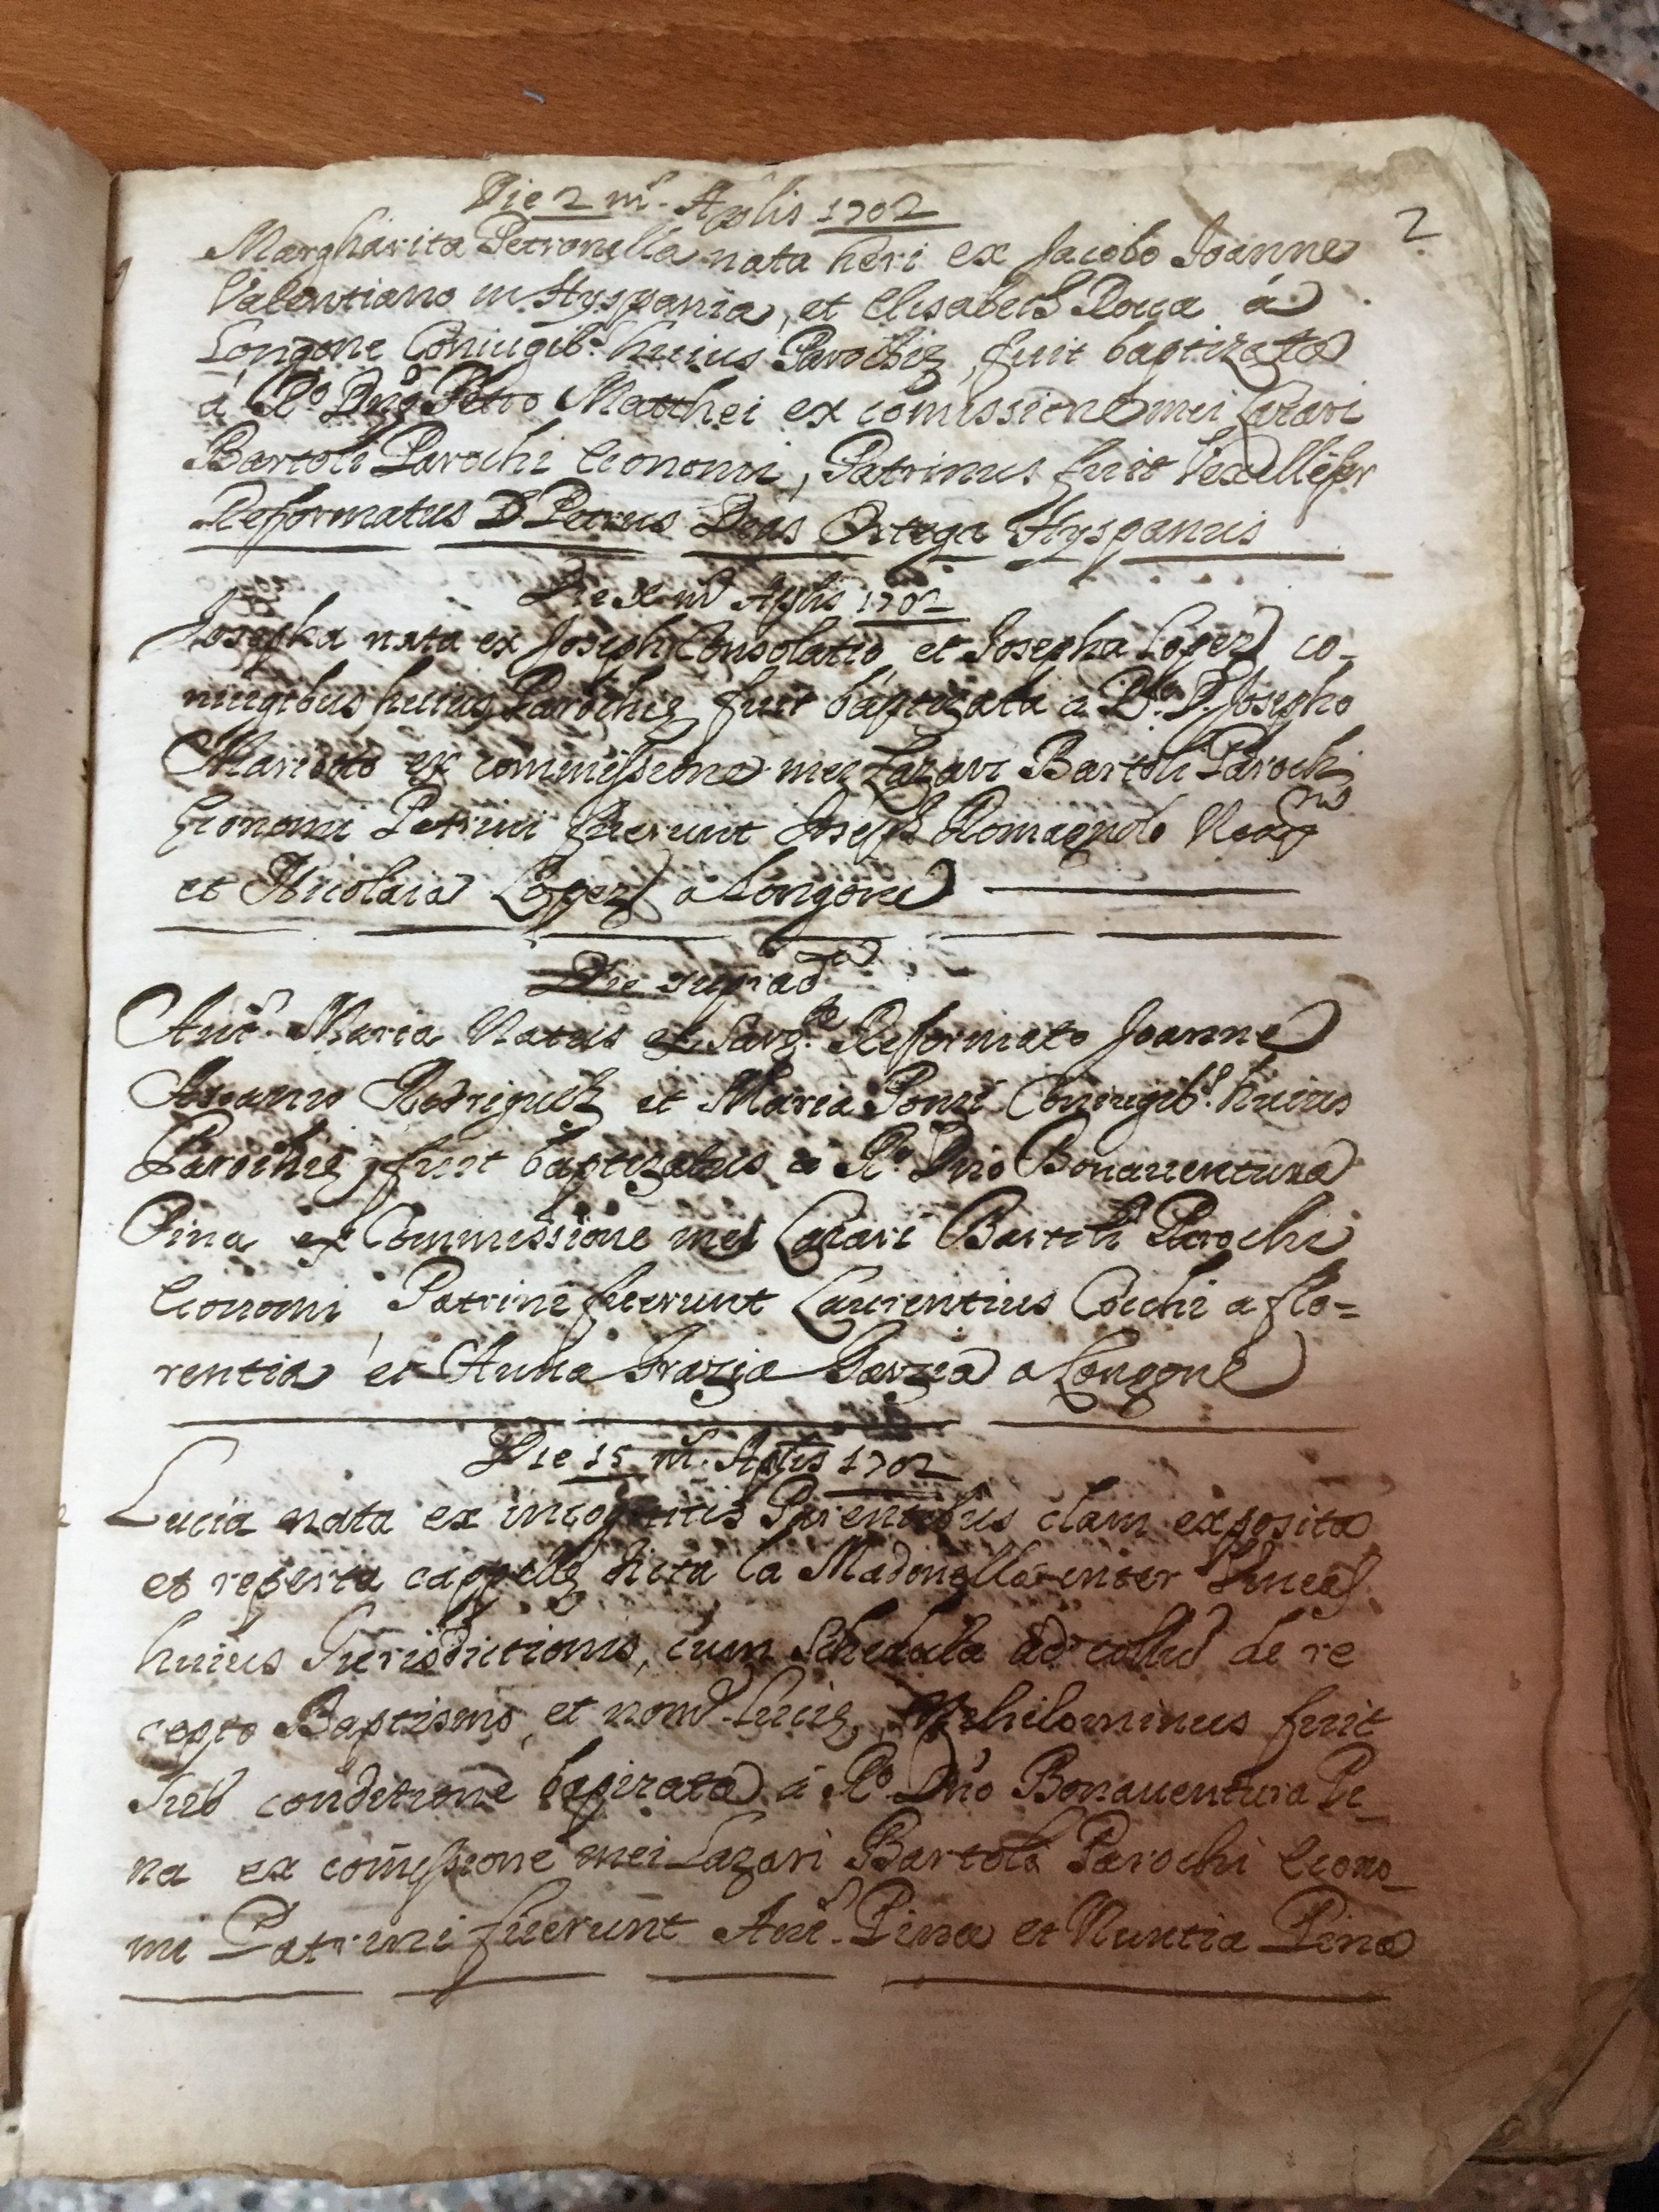 Die 2 m.s Aplis 1702
2
Margharita Petronella nata heri ex Jacobo Joanne
Valentiano in Hyspania, et Elisabeth Roca à
Longone Coniugib.s huius Parochię, fuit baptizata
à R.o Dño Petro Matthei ex comissione mei Lazari
Bartoli Parochi Economi, Patrinus fuit Vexillifer
Reformatus D. Petrus Ortega Hyspanus
Die X m.s Aplis 1702
Josepha nata ex Joseph Consolatio et Josepha Lopez co-
niugibus huius Parochię fuit baptizata a D. Josepho
Mariotto ex commissione mei Lazari Bartoli Parochi
Economi Patrini fuerunt Joseph Romagnolo
et Nicolaia Lopez a Longone
Die suprad.a
Ant.s Maria Natus ex Reformato Joanne
Rodriguez et Maria Ponzi Coniugib.s huius
Parochię, fuit baptizatus a R.o Dño Bonauentura
Pina ex Commissione mei Lazari Bartoli Parochi
Economi Patrini fuerunt Laurentius Cocchi a flo=
rentia et Anna Grazia Garzia a Longone
Die 15 m.s Aplis 1702
Lucia nata ex incognitis Parentibus clam exposita
et reperta cappellę dicta la Madonella inter Vineas
huius Jurisdictionis, cum Schedula ad collũ de re
cepto Baptismo, et nom.e Lucię, Nihilominus fuit
sub conditione bapizata à R.o Dño Bonauentura Pi_
na ex comissione mei Lazari Bartoli Parochi Econo_
mi Patrini fuerunt Ant.s Pina et Nuntia Pina